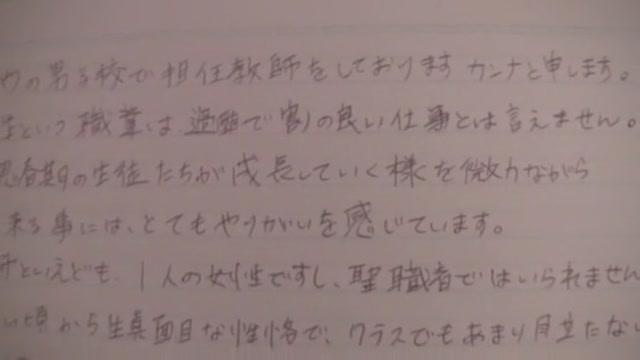 ウの男子校で担任教師をしております カンナと申します。
という職業は、過酷で割の良い仕事とは言えません。
思春期の生徒たちが成長していく様を微力ながら
来る事には、とてもやりがいを感じています。
といえども、1人の女性ですし、聖職者ではいられません
い頃から生真面目な性格で、クラスでもあまり目立たない